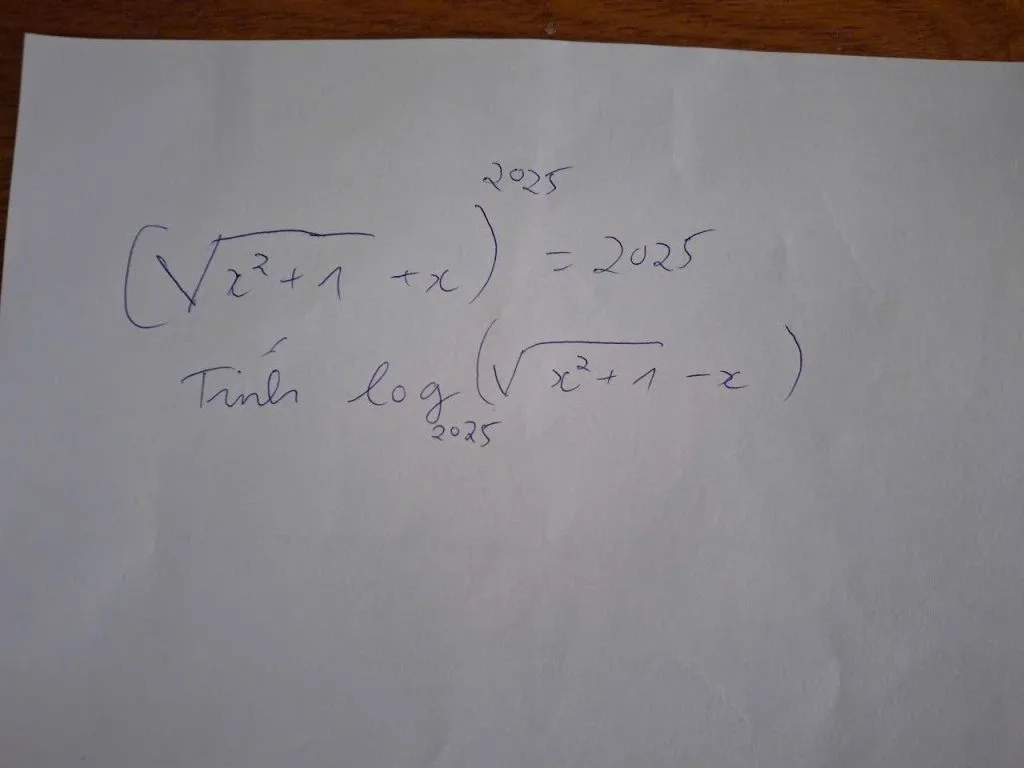 (√(x²+1) + x)²⁰²⁵ = 2025
Tính log₂₀₂₅(√(x²+1) - x)